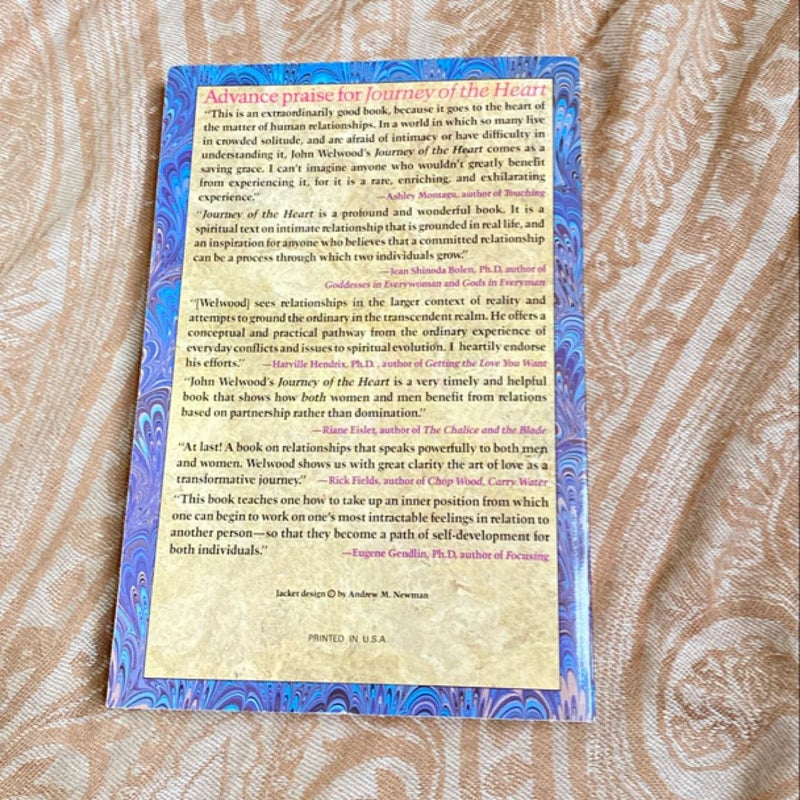 Advance praise for Journey of the Heart
"This is an extraordinarily good book, because it goes to the heart of
the matter of human relationships. In a world in which so many live
in crowded solitude, and are afraid of intimacy or have difficulty in
understanding it, John Welwood's Journey of the Heart comes as a
saving grace. I can't imagine anyone who wouldn't greatly benefit
from experiencing it, for it is a rare, enriching, and exhilarating
experience."
—Ashley Montagu, author of Touching
"Journey of the Heart is a profound and wonderful book. It is a
spiritual text on intimate relationship that is grounded in real life, and
an inspiration for anyone who believes that a committed relationship
can be a process through which two individuals grow."
—Jean Shinoda Bolen, Ph.D, author of
Goddesses in Everywoman and Gods in Everyman
"[Welwood] sees relationships in the larger context of reality and
attempts to ground the ordinary in the transcendent realm. He offers a
conceptual and practical pathway from the ordinary experience of
everyday conflicts and issues to spiritual evolution. I heartily endorse
his efforts." —Harville Hendrix, Ph.D., author of Getting the Love You Want
"John Welwood's Journey of the Heart is a very timely and helpful
book that shows how both women and men benefit from relations
based on partnership rather than domination."
—Riane Eisler, author of The Chalice and the Blade
"At last! A book on relationships that speaks powerfully to both men
and women. Welwood shows us with great clarity the art of love as a
transformative journey." —Rick Fields, author of Chop Wood, Carry Water
"This book teaches one how to take up an inner position from which
one can begin to work on one's most intractable feelings in relation to
another person—so that they become a path of self-development for
both individuals."
—Eugene Gendlin, Ph.D, author of Focusing
Jacket design © by Andrew M. Newman
PRINTED IN U.S.A.